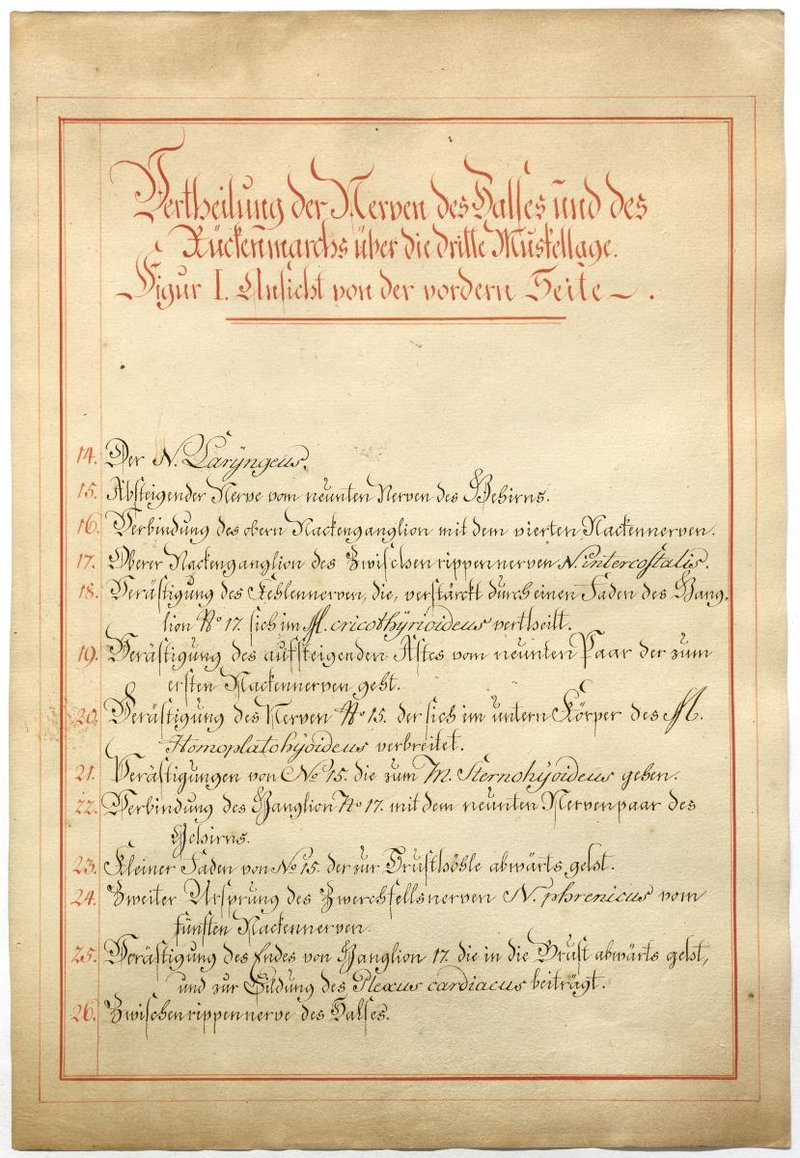 Vertheilung der Nerven des Halses und des
Rückenmarchs über die dritte Muskellage.
Figur I. Ansicht von der vordern Seite.
14. Der N. Larÿngeus.
15. Absteigender Nerve vom neunten Nerven des Gehirns.
16. Verbindung des obern Nackenganglion mit dem vierten Nackennerven.
17. Oberer Nackenganglion des Zwischenrippennerven N. intercostalis.
18. Verästigung des Kehlennerven, die, verstärckt durch einen Faden des Gang-
lion No 17. sich im M. cricothÿrioideus vertheilt.
19. Verästigung des aufsteigenden Astes vom neunten Paar der zum
ersten Nackennerven geht.
20. Verästigung des Nerven No 15. der sich im untern Körper des M.
Homoplatohÿoideus verbreitet.
21. Verästigungen von No 15. die zum M. Sternohÿoideus gehen.
22. Verbindung des Ganglion No 17. mit dem neunten Nervenpaar des
Gehirns.
23. Kleiner Faden von No 15. der zur Brusthöhle abwärts geht.
24. Zweiter Ursprung des Zwerchfellsnerven N. phrenicus vom
fünften Nackennerven.
25. Verästigung des Endes von Ganglion 17. die in die Brust abwärts geht,
und zur Bildung des Plexus cardiacus beiträgt.
26. Zwischenrippennerve des Halses.